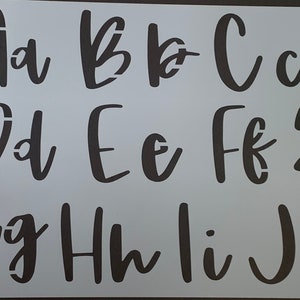 Aa Bb Cc
Dd Ee Ff
g Hh Ii J